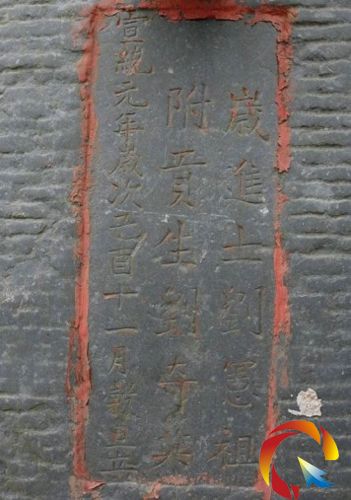 歲進士劉憲祖
附貢生劉奇英
宣統元年歲次己酉十一月新立